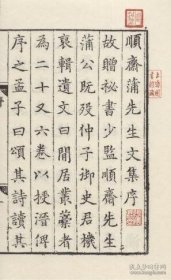 順齋蒲先生文集序
故贈秘書少監順齋先生
蒲公既歿仲子御史君機
裒輯遺文曰閒居叢藁者
為二十又六卷以授濟俾
序之孟子曰頌其詩讀其